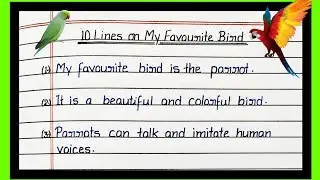 10 Lines on My Favourite Bird
(1) My favourite bird is the parrot.
(2) It is a beautiful and colorful bird.
(3) Parrots can talk and imitate human
voices.